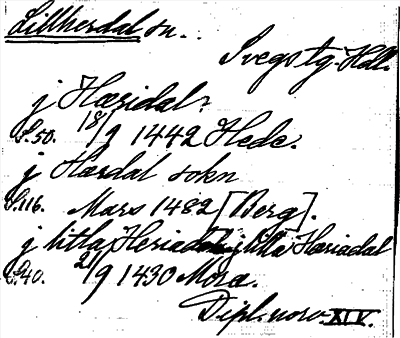 Lillherdal sn.
Svegs tg. Hdl.
j Hæridal
S.50. 18/9 1442 Hede.
j Hærdal sokn
S.116. Mars 1482 [Berg].
j litla Heriadal j litla Hæriadal
S.40. 21/9 1430 Mora.
Dipl. norv. XIV.